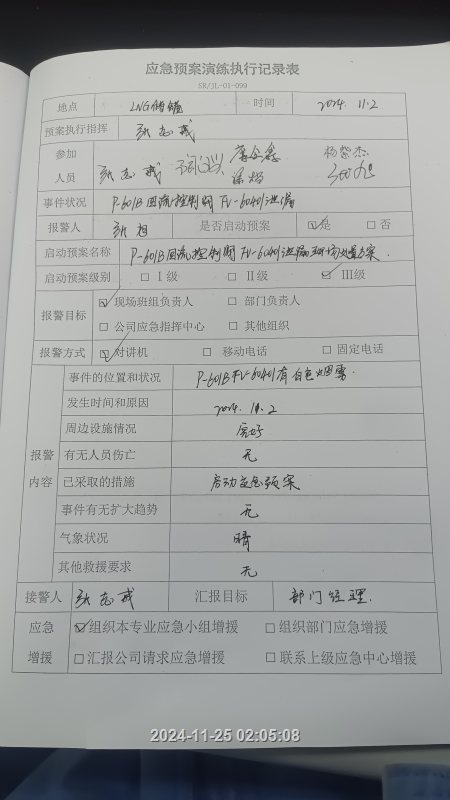 应急预案演练执行记录表
SR/JL-01-099
地点 LNG储罐 时间 2024.11.2
预案执行指挥 张志成
参加
人员 张志成 杨紫杰
事件状况 P-601B回流控制阀 FV-60401泄漏
报警人 张旭 是否启动预案 ☑是 □否
启动预案名称 P-601B回流控制阀 FV-60401泄漏现场处置方案.
启动预案级别 □Ⅰ级 □Ⅱ级 ☑Ⅲ级
报警目标 ☑现场班组负责人 □部门负责人
□公司应急指挥中心 □其他组织
报警方式 ☑对讲机 □移动电话 □固定电话
报警
内容
事件的位置和状况 P-601B FV-60401有白色烟雾.
发生时间和原因 2024.11.2
周边设施情况 完好
有无人员伤亡 无
已采取的措施 启动应急预案
事件有无扩大趋势 无
气象状况 晴
其他救援要求 无
接警人 张志成 汇报目标 部门经理.
应急 ☑组织本专业应急小组增援 □组织部门应急增援
增援 □汇报公司请求应急增援 □联系上级应急中心增援
2024-11-25 02:05:08